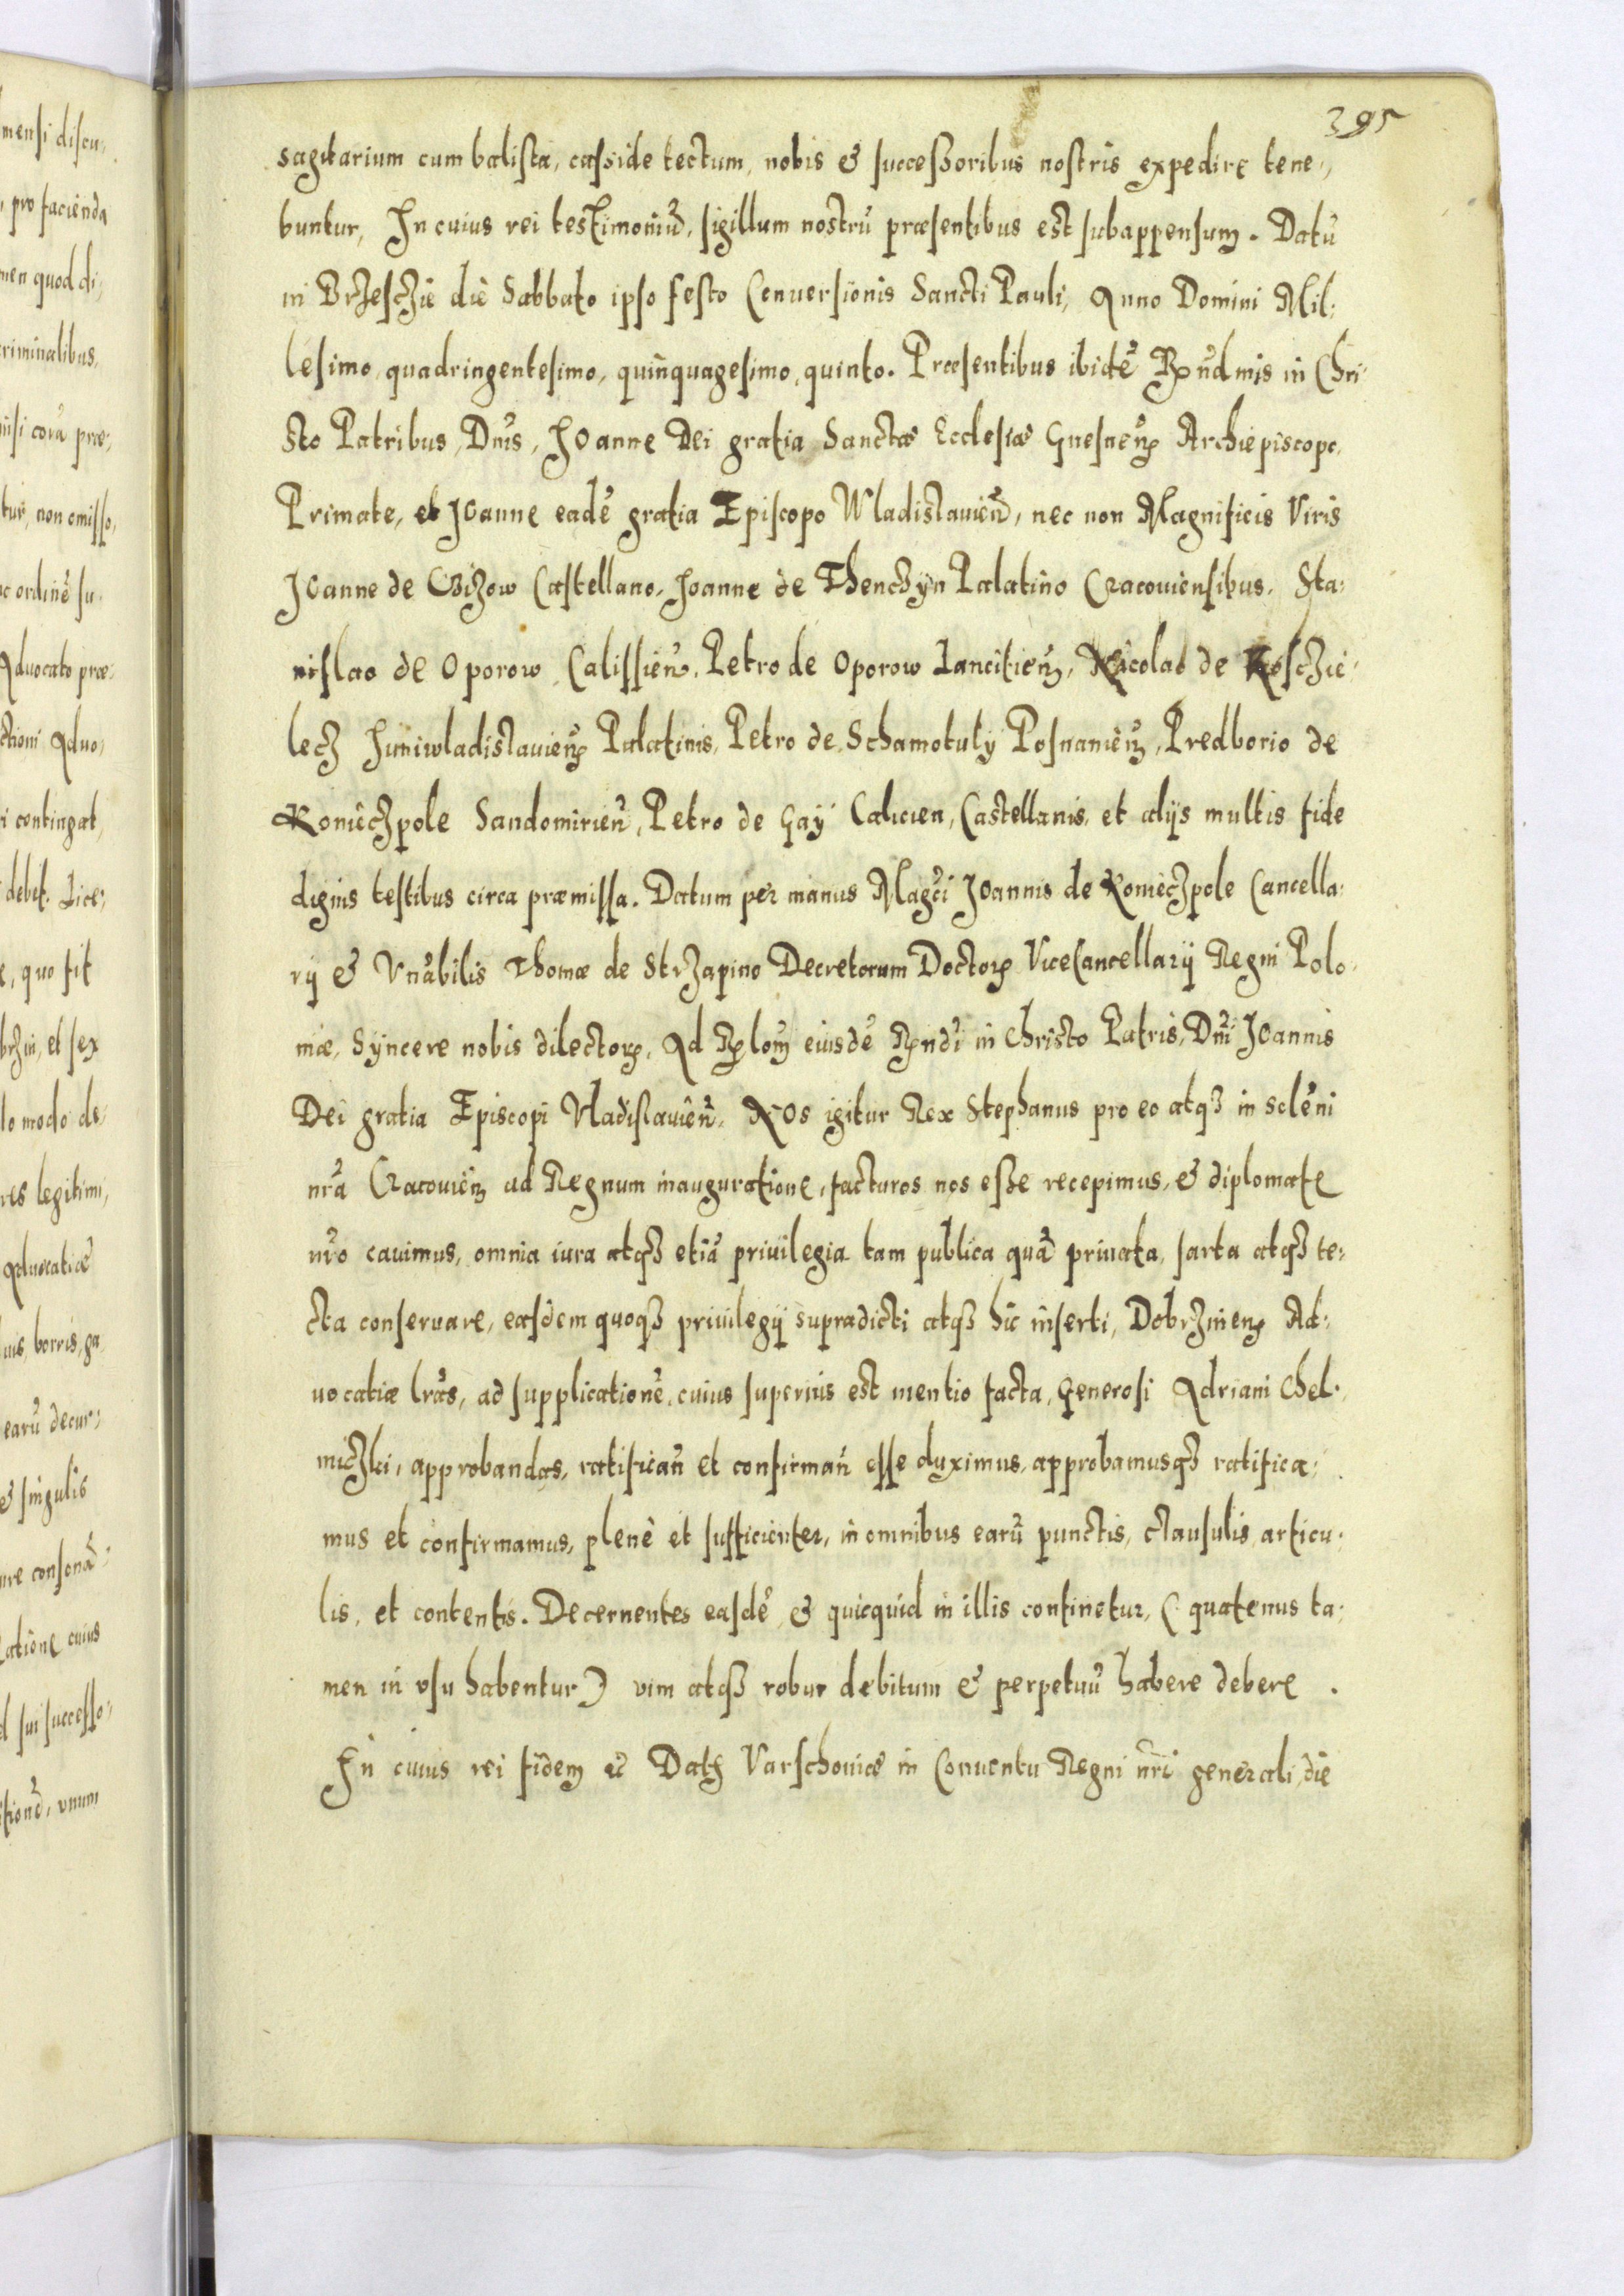 395
sagitarium cum balista, casside tectum, nobis & successoribus nostris expedire tene,,
buntur, In cuius rei testimoniū, sigillum nostrū præsentibus est subappensum. Datū
in Brzesczie die Sabbato ipso festo Conuersionis Sancti Pauli, Anno Domini Mil:
lesimo, quadringentesimo, quinquagesimo, quinto. Præsentibus ibidē Rndmis in Chri
sto Patribus, Dnis, Joanne Dei gratia Sanctæ Ecclesiæ Gnesnen Archiepiscopo,
Primate, et Joanne eadē gratia Episcopo Wladislauien, nec non Magnificis Viris
Joanne de Czizow Castellano, Joanne de Thenczyn Palatino Cracouiensibus, Sta:
nislao de Oporow Calissien, Petro de Oporow Lancitien, Nicolao de Kosczie:
lecz Juniwladislauien Palatinis, Petro de Schamotuly Posnanien, Predborio de
Konieczpole Sandomirien, Petro de Gay Calicien, Castellanis, et alijs multis fide
dignis testibus circa præmissa. Datum per manus Magci Joannis de Konieczpole Cancella:
rij & Vnabilis Thomæ de Strzapino Decretorum Doctoris ViceCancellarij Regni Polo.
niæ, Syncere nobis dilectorum, Ad Rlom eiusdē Rndi in Christo Patris, Dni Joannis
Dei gratia Episcopi Vladislauien. Nos igitur Rex Stephanus pro eo atq3 in solēni
nra Cracouien ad Regnum inauguratione, facturos nos esse recepimus, & diplomate
nro cauimus, omnia iura atq3 etiā priuilegia tam publica quā priuata, sarta atq3 te:
cta conseruare, easdem quoq3 priuilegij supradicti atq3 hic inserti, Dobrzinien Ad:
uocatiæ lras, ad supplicationē, cuius superius est mentio facta, Generosi Adriani Chel.
miczki, approbandas, ratifican et confirman esse duximus, approbamusq3 ratifica:
mus et confirmamus, plenè et sufficienter, in omnibus earū punctis, clausulis, articu:
lis, et contentis. Decernentes easdē & quicquid in illis continetur, ( quatenus ta:
men in vsu habentur ) vim atq3 robur debitum & perpetuū habere debere .
In cuius rei fidem &c Datum Varschouiæ in Conuentu Regni nri generali, die